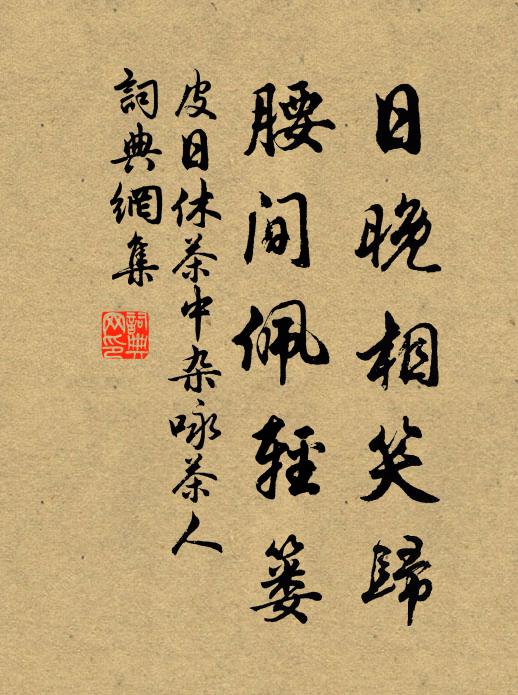 日晚相笑歸
腰间佩輕簍
皮日休茶中杂咏茶人
詞典網集
詞典网印